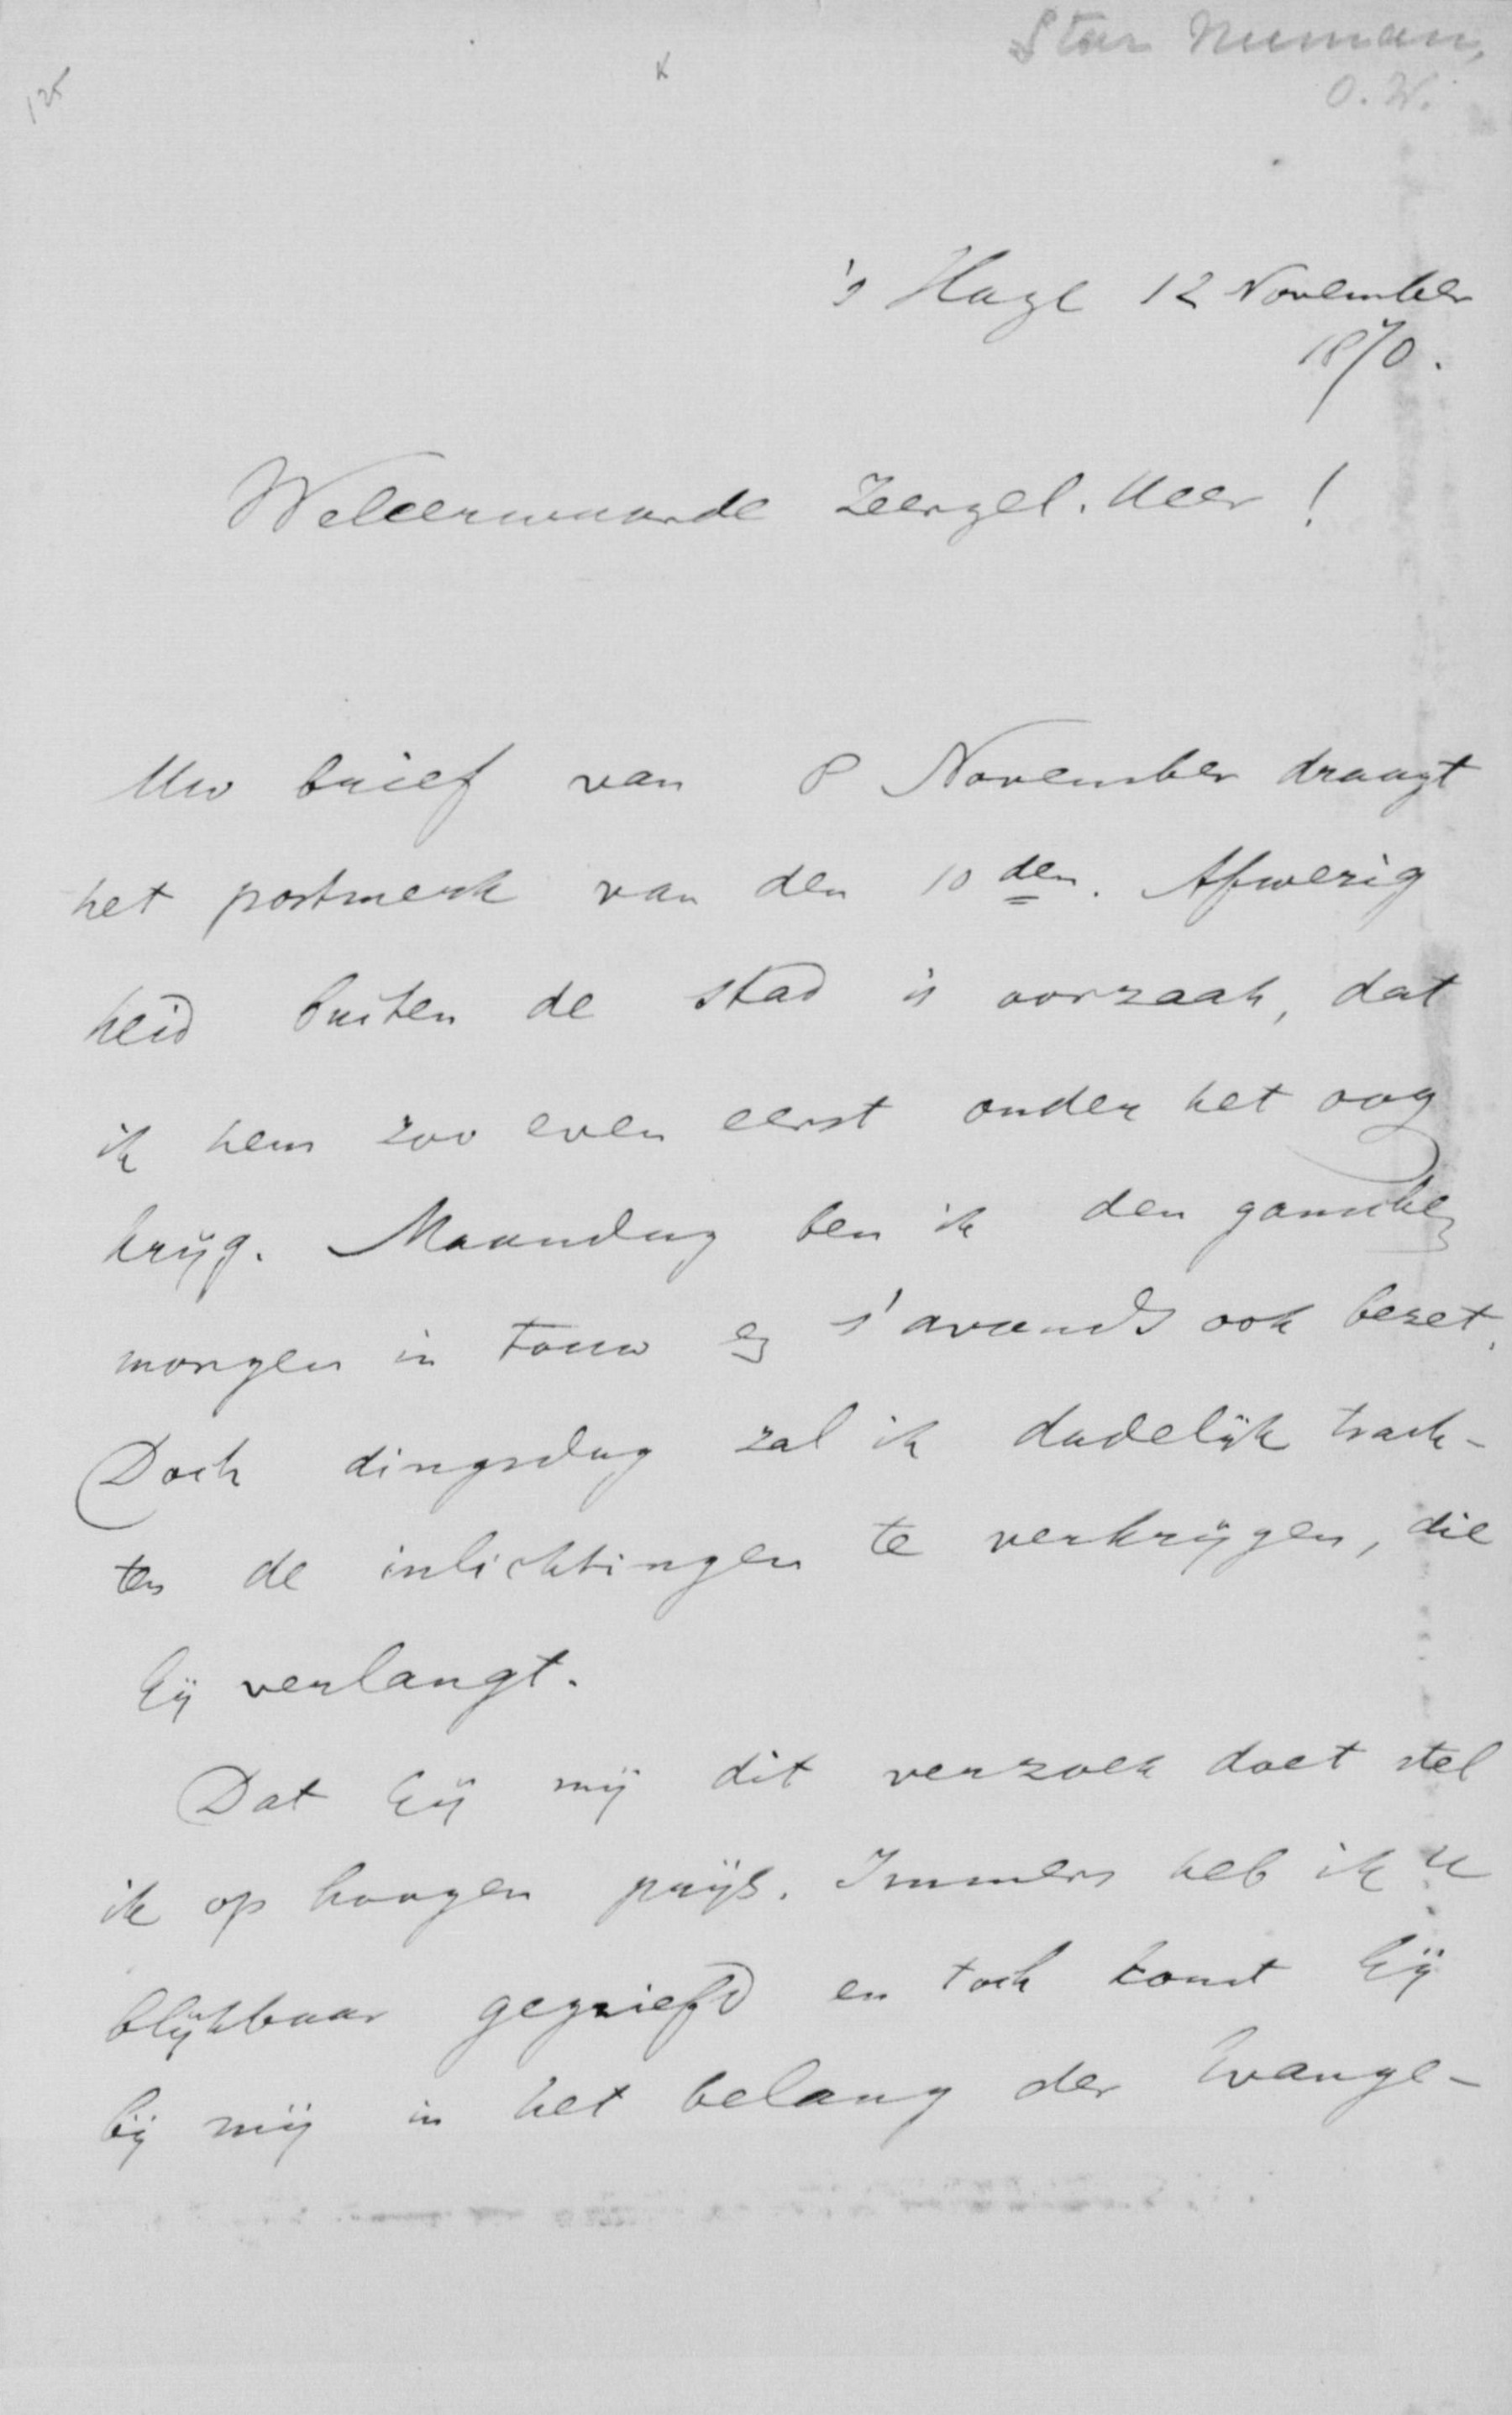 Star Numan,
O. W.
125
K
's Hage 12 November
1870.
Weleerwaarde Zeergel. Heer!
Uw brief van 8 November draagt
het postmerk van den 10den. Afwezig
heid buiten de stad is oorzaak, dat
ik hem zoo even eerst onder het oog
kryg. Maandag ben ik den ganschen
morgen in touw en s'avonds ook bezet.
Doch dingsdag zal ik dadelijk trach-
ten de inlichtingen te verkrijgen, die
Gij verlangt.
Dat Gij mij dit verzoek doet stel
ik op hoogen prijs. Immers heb ik U
blijkbaar gegriefd en toch komt Gij
bij mij in het belang der Evange-